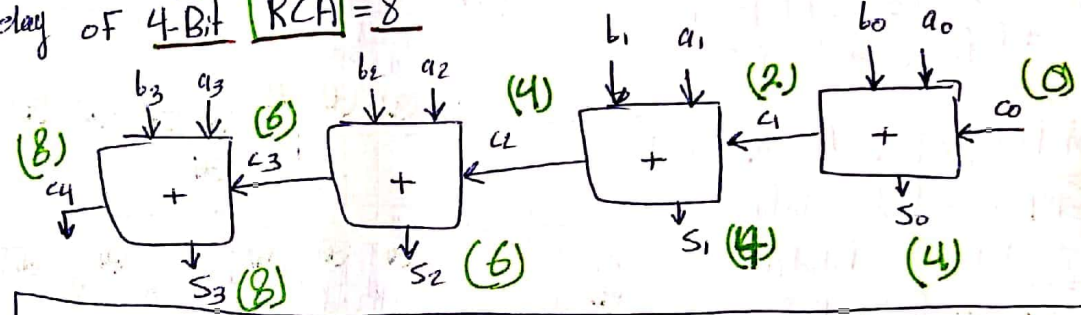 of 4-Bit RCA = 8
b3 a3 b2 a2 b1 a1 b0 a0
(8) (6) (4) (2) (0)
c4 c3 c2 c1 c0
+ + + +
S3 (8) S2 (6) S1 (4) S0 (4)